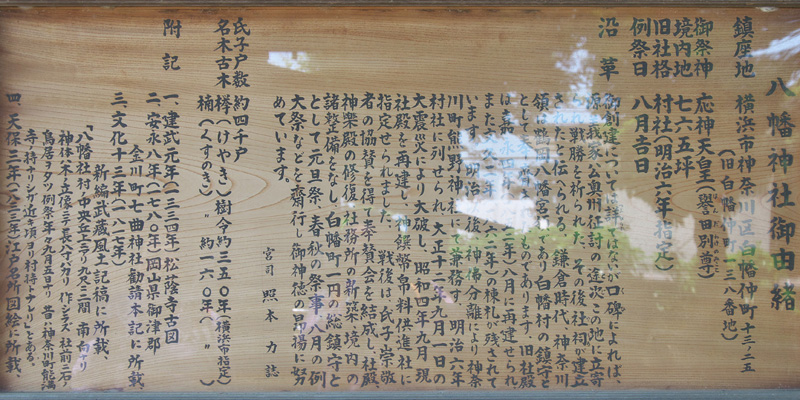 八幡神社御由緒
鎮座地　横浜市神奈川区白幡仲町十三ノ二五
（旧白幡仲町一三八番地）
御祭神　応神天皇（誉田別尊）
境内地　七六五坪
旧社格　村社（明治六年指定）
例祭日　八月吉日
沿革
御創建については詳ではないが口碑によれば、
源義家公奥州征討の途次この地に立寄
られ戦勝を祈られた、その後社祠が建立
されたと伝えられる、鎌倉時代、神奈川
領は鶴岡八幡宮
であり白幡村の鎮守と
として
ものであります、旧社殿
は嘉永四年
年）八月に再建せられ
また
年）の棟札が残されて
います。明治
後、神仏分離により神奈
川町熊野神社
兼務、明治六年
村社に列せられ、大正十二年九月一日の
大震災により大破し、昭和四年九月現
社殿を再建し、
神饌幣帛料供進社に
指定せられました。戦後は、氏子、崇敬
者の協賛を得て奉賛会を結成し、社殿、
神楽殿の修復、社務所の新築、境内の
諸整備をなし、白幡町一円の総鎮守と
として元旦祭、春秋の祭事、八月の例
大祭などを斎行し御神徳の昂揚に努
めています。
宮司　照本　力　誌
氏子戸数　約四千戸
名木古木　欅（けやき）樹令約三五〇年（横浜市指定）
楠（くすのき）〃　約一六〇年（〃）
附記
一、建武元年（一三三四年）松蔭寺古図
二、安永八年（一七八〇年）岡山県御津郡
金川町七曲神社勧請本記に所載
三、文化十三年（一八一七年）
新編武蔵風土記稿に所載、
「八幡社 村ノ中央丘上ニアリ九尺ニ二間 南向ナリ
神体木ノ丘像ニテ長六寸バカリ 作シラズ 社前ニ石ノ
鳥居ヲタツ例祭年々九月五日ナリ 昔ハ神奈川町能満
寺ノ持ナリシガ近キ頃ヨリ村持トナレリ」とある。
四、天保三年（一八三二年）江戸名所図絵に所載、